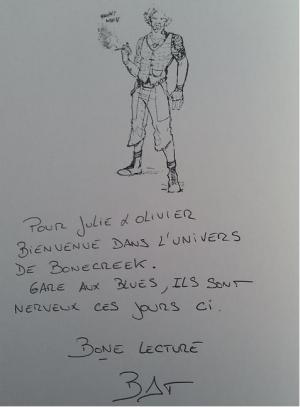 Pour Julie & Olivier
Bienvenue dans l'univers
de Bonecreek.
Gare aux Blues, ils sont
nerveux ces jours ci.
Bone lecture
BAT